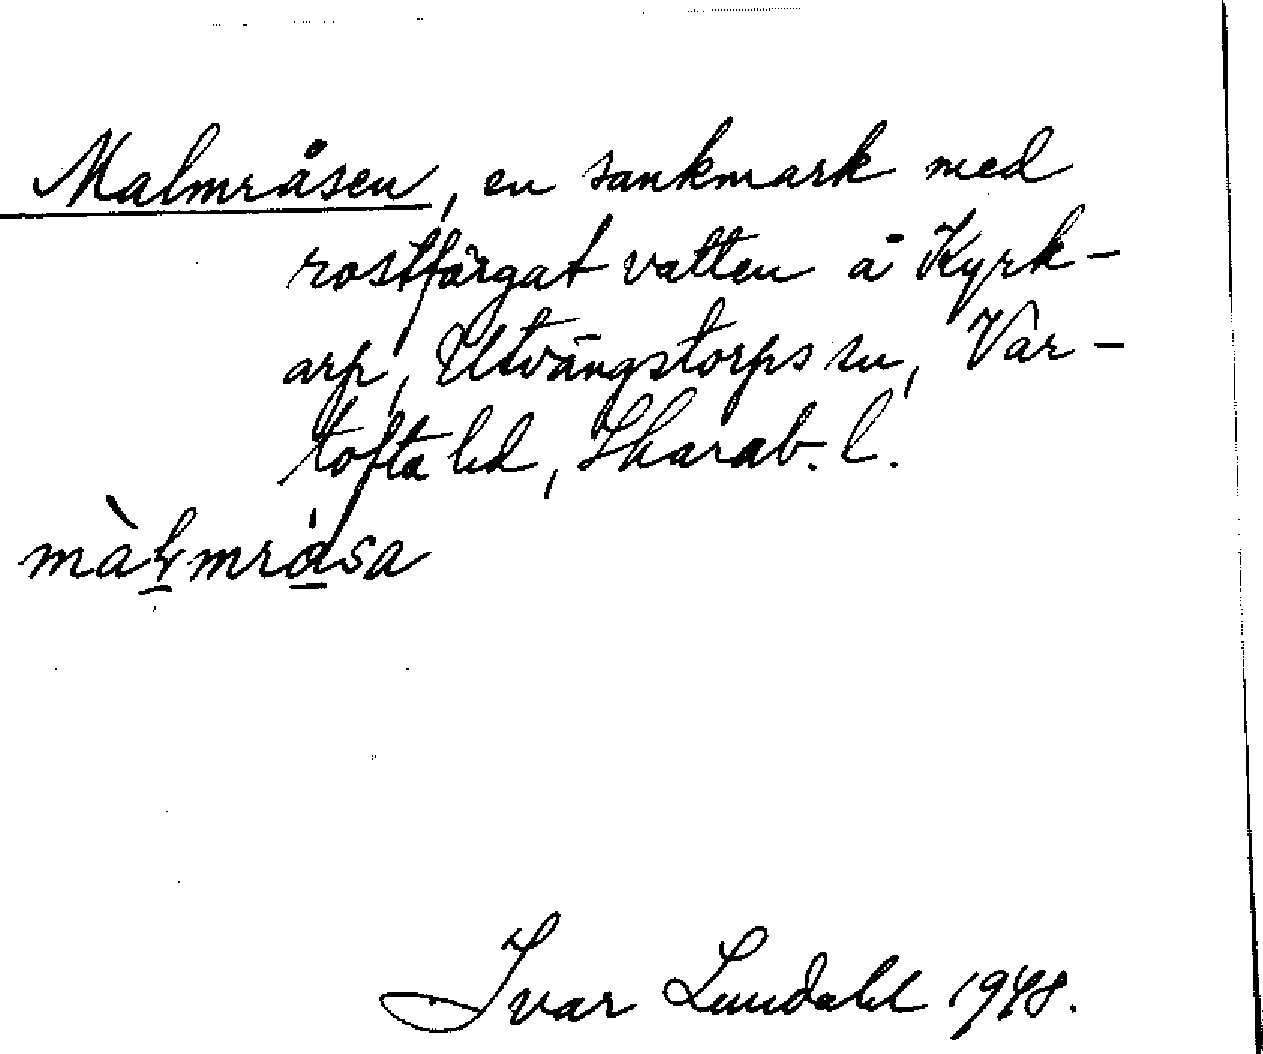 Malmråsen, en sankmark med
rostfärgat vatten å Kyrk-
arp, Utvängstorps sn, Var-
tofta hd, Skarab. l.
màłmråsa
Ivar Lundahl 1948.